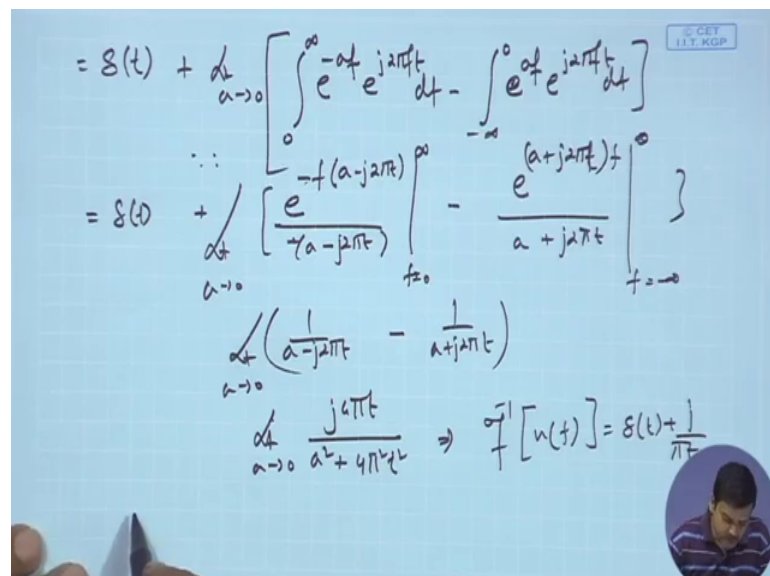 © CET
I.I.T. KGP
= δ(t) + Lt_{a→0} [ ∫_0^∞ e^{-af} e^{j2πft} df - ∫_{-∞}^0 e^{af} e^{j2πft} df ]
∵
= δ(t) + Lt_{a→0} [ e^{-f(a-j2πt)} / -(a-j2πt) |_{f=0}^∞ - e^{(a+j2πt)f} / a+j2πt |_{f=-∞}^0 ]
Lt_{a→0} ( 1/(a-j2πt) - 1/(a+j2πt) )
Lt_{a→0} j4πt / (a² + 4π²t²) ⇒ F^{-1}[u(f)] = δ(t) + j/πt